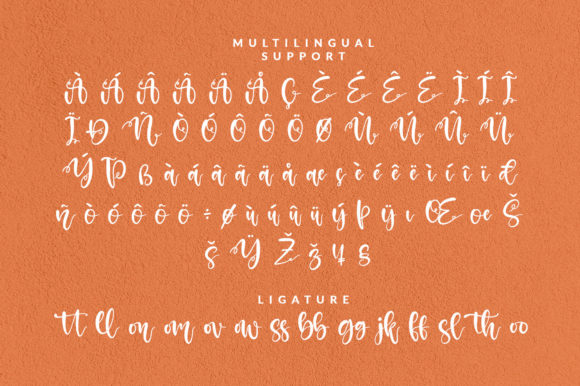 MULTILINGUAL
SUPPORT
À Á Â Ã Ä Å Ç È É Ê Ë Ì Í Î
Ï Ð Ñ Ò Ó Ô Õ Ö Ø Ù Ú Û Ü
Ý Þ ß à á â ã ä å æ ç è é ê ë ì í î ï đ
ñ ò ó ô õ ö ÷ ø ù ú û ü ý þ ÿ ı Œ œ Š
š Ÿ Ž ž ¥ §
LIGATURE
tt ll on om ov aw ss bb gg jk ff sl th oo